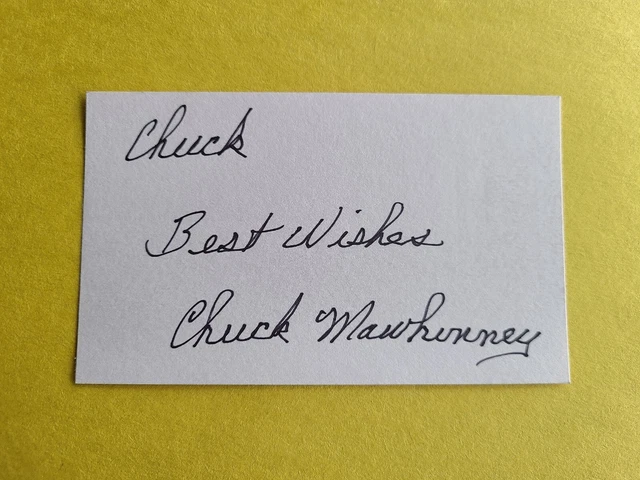 Chuck
Best Wishes
Chuck Mawhinney